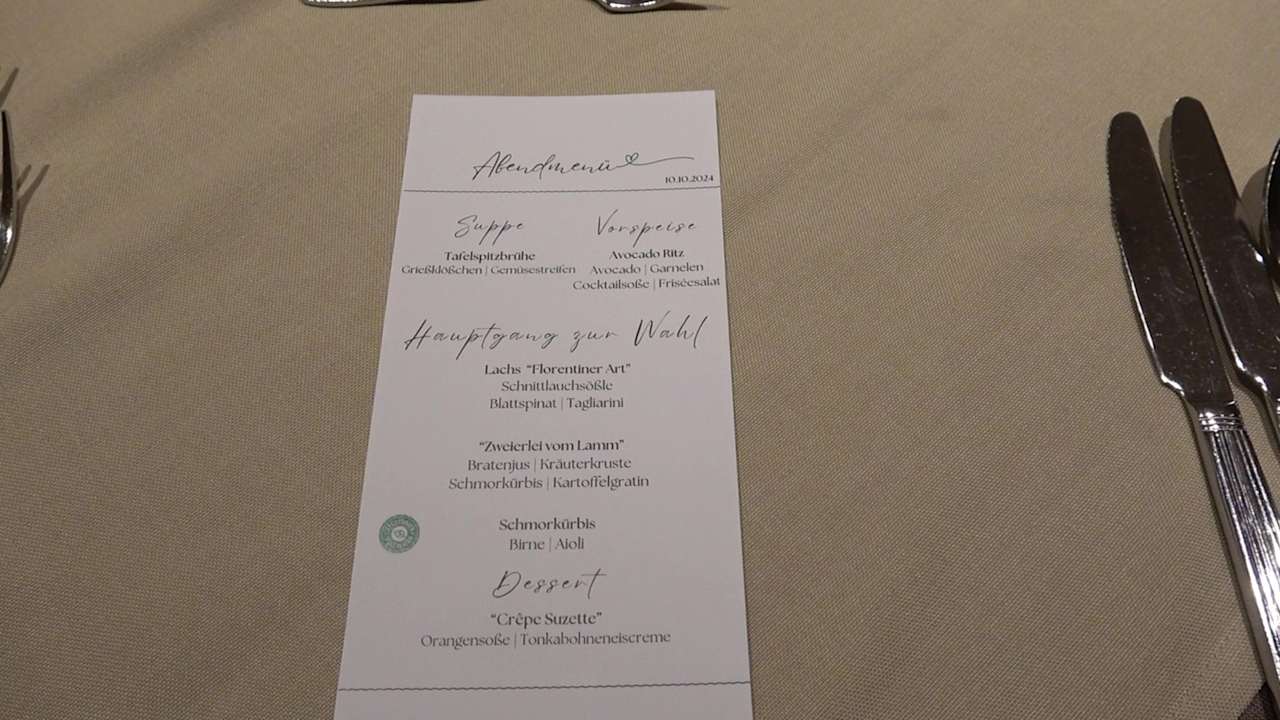 Abendmenü
10.10.2024
Suppe
Tafelspitzbrühe
Grießklößchen | Gemüsestreifen
Vorspeise
Avocado Ritz
Avocado | Garnelen
Cocktailsoße | Friséesalat
Hauptgang zur Wahl
Lachs "Florentiner Art"
Schnittlauchsößle
Blattspinat | Tagliarini
"Zweierlei vom Lamm"
Bratenjus | Kräuterkruste
Schmorkürbis | Kartoffelgratin
Schmorkürbis
Birne | Aioli
Dessert
"Crêpe Suzette"
Orangensoße | Tonkabohneneiscreme